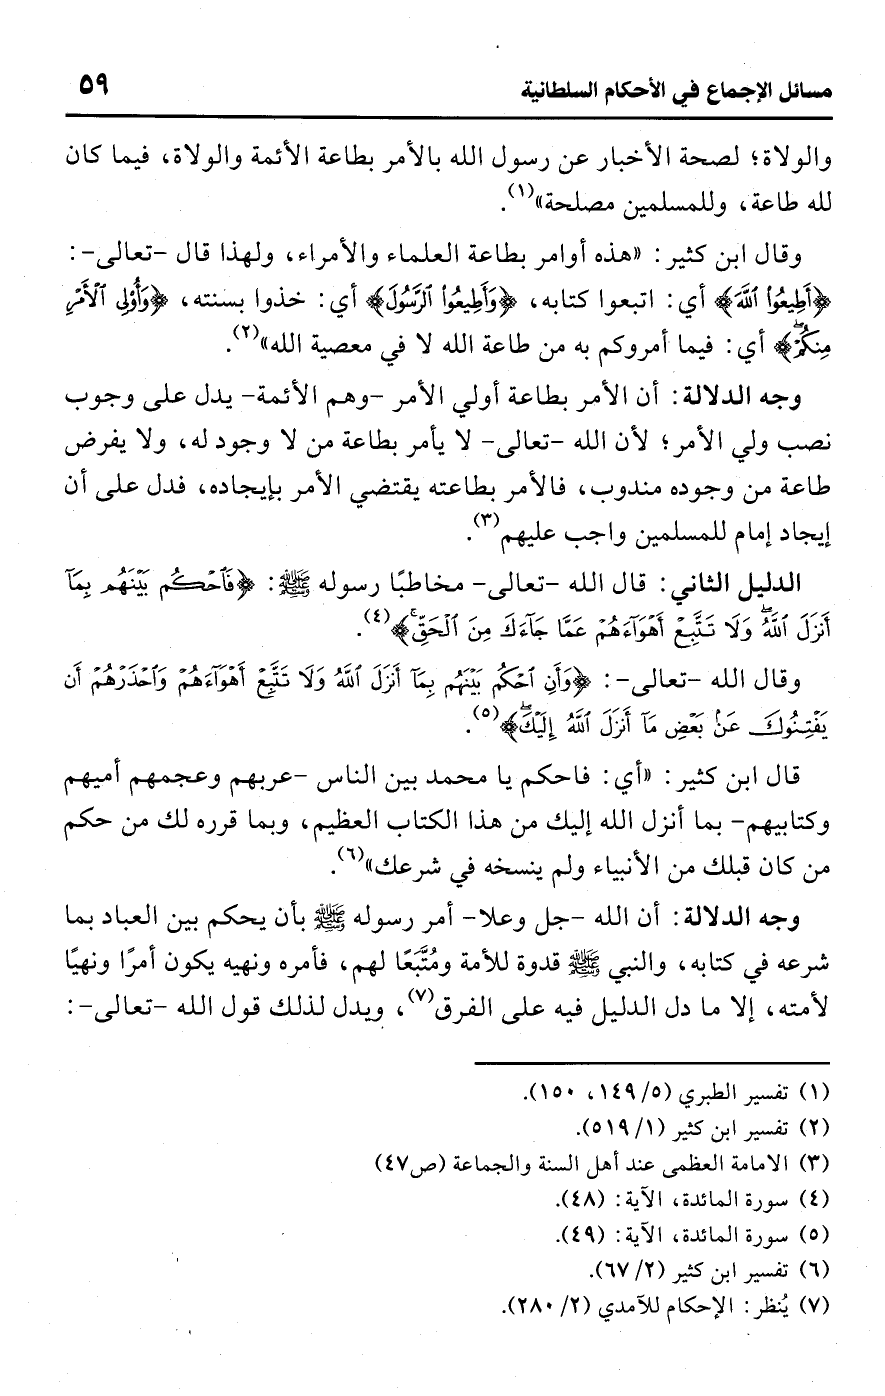 مسائل الإجماع في الأحكام السلطانية ٥٩
والولاة؛ لصحة الأخبار عن رسول الله بالأمر بطاعة الأئمة والولاة، فيما كان
لله طاعة، وللمسلمين مصلحة»(١).
وقال ابن كثير: «هذه أوامر بطاعة العلماء والأمراء، ولهذا قال -تعالى-:
﴿أَطِيعُوا۟ ٱللَّهَ﴾ أي: اتبعوا كتابه، ﴿وَأَطِيعُوا۟ ٱلرَّسُولَ﴾ أي: خذوا بسنته، ﴿وَأُو۟لِى ٱلْأَمْرِ
مِنكُمْ ۖ﴾ أي: فيما أمروكم به من طاعة الله لا في معصية الله»(٢).
وجه الدلالة: أن الأمر بطاعة أولي الأمر -وهم الأئمة- يدل على وجوب
نصب ولي الأمر؛ لأن الله -تعالى- لا يأمر بطاعة من لا وجود له، ولا يفرض
طاعة من وجوده مندوب، فالأمر بطاعته يقتضي الأمر بإيجاده، فدل على أن
إيجاد إمام للمسلمين واجب عليهم(٣).
الدليل الثاني: قال الله -تعالى- مخاطبًا رسوله ﷺ: ﴿فَٱحْكُم بَيْنَهُم بِمَآ
أَنزَلَ ٱللَّهُ ۖ وَلَا تَتَّبِعْ أَهْوَآءَهُمْ عَمَّا جَآءَكَ مِنَ ٱلْحَقِّ ۚ﴾(٤).
وقال الله -تعالى-: ﴿وَأَنِ ٱحْكُم بَيْنَهُم بِمَآ أَنزَلَ ٱللَّهُ وَلَا تَتَّبِعْ أَهْوَآءَهُمْ وَٱحْذَرْهُمْ أَن
يَفْتِنُوكَ عَنۢ بَعْضِ مَآ أَنزَلَ ٱللَّهُ إِلَيْكَ ۖ﴾(٥).
قال ابن كثير: «أي: فاحكم يا محمد بين الناس -عربهم وعجمهم أميهم
وكتابيهم- بما أنزل الله إليك من هذا الكتاب العظيم، وبما قرره لك من حكم
من كان قبلك من الأنبياء ولم ينسخه في شرعك»(٦).
وجه الدلالة: أن الله -جل وعلا- أمر رسوله ﷺ بأن يحكم بين العباد بما
شرعه في كتابه، والنبي ﷺ قدوة للأمة ومُتَّبَعًا لهم، فأمره ونهيه يكون أمرًا ونهيًا
لأمته، إلا ما دل الدليل فيه على الفرق(٧)، ويدل لذلك قول الله -تعالى-:
(١) تفسير الطبري (٥/ ١٤٩، ١٥٠).
(٢) تفسير ابن كثير (١/ ٥١٩).
(٣) الامامة العظمى عند أهل السنة والجماعة (ص٤٧)
(٤) سورة المائدة، الآية: (٤٨).
(٥) سورة المائدة، الآية: (٤٩).
(٦) تفسير ابن كثير (٢/ ٦٧).
(٧) يُنظر: الإحكام للآمدي (٢/ ٢٨٠).